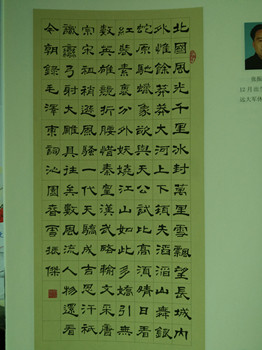 北國風光千里冰封萬里雪飄望長城內
外惟餘莽莽大河上下頓失滔滔山舞銀
蛇原馳蠟象欲與天公試比高須晴日看
紅裝素裹分外妖嬈江山如此多嬌引無
數英雄競折腰惜秦皇漢武略輸文采唐
宗宋祖稍遜風騷一代天驕成吉思汗祇
識彎弓射大雕俱往矣數風流人物還看
今朝錄毛澤東詞沁園春雪振傑